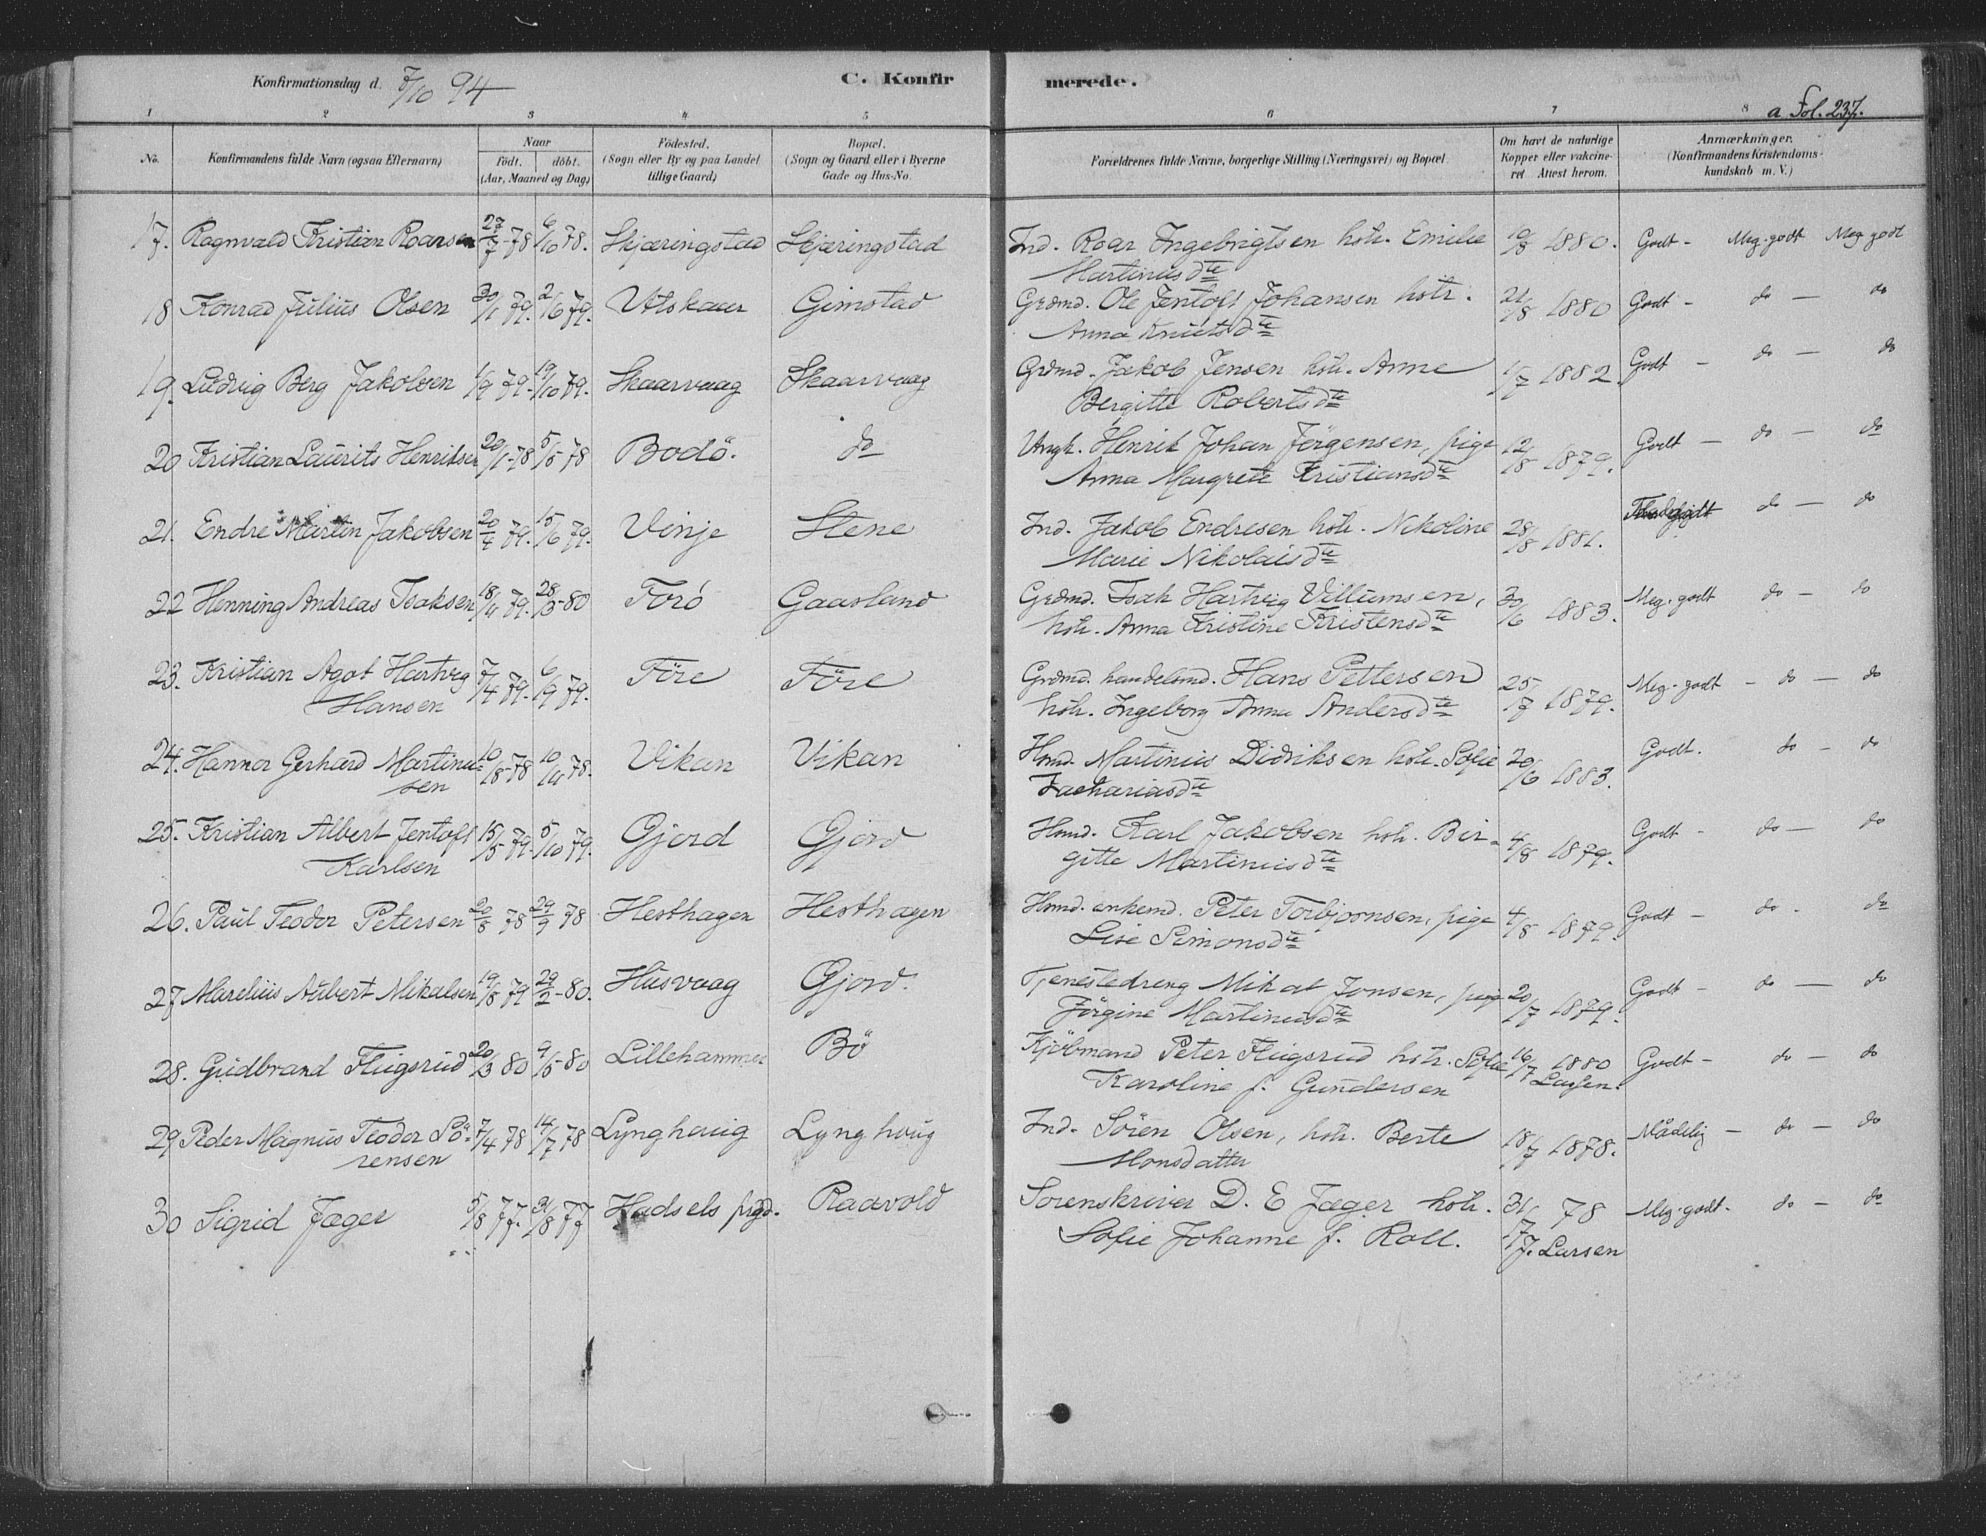 Konfirmationsdag d. 7/10 94
C. Konfirmerede.
a Fol. 237.
1 2 3 4 5 6 7 8
No.
Konfirmandens fulde Navn (ogsaa Efternavn)
Naar født. døbt. (Aar, Maaned og Dag)
Födested. (Sogn eller By og paa Landet tillige Gaard)
Bopæl. (Sogn og Gaard eller i Byerne Gade og Hus-No.
Forældrenes fulde Navne, borgerlige Stilling (Næringsvei) og Bopæl.
Om havt de naturlige Kopper eller vakcineret Attest herom.
Anmærkninger. (Konfirmandens Kristendomskundskab m. V.)
17. Ragnvald Kristian Roarsen 27/7-78 6/10 78. Skjæringstad Skjæringstad Ind. Roar Ingebrigtsen hstr. Emilie 10/8 1880. Godt - Meg. godt Meg godt
Martinusdte
18 Konrad Julius Olsen 30/1 79. 2/6 79. Utskaar Gimstad Grdmd. Ole Jentoft Johansen hstr. 21/8 1880 Godt - do - do
Anna Knutsdte
19. Ludvig Berg Jakobsen 1/9 79. 19/10 79. Skaarvaag Skaarvaag Grdmd. Jakob Jensen hstr. Anne 1/7 1882. Godt - do - do
Bergitte Robertsdte
20 Kristian Laurits Henriksen 20/1-78 5/5 78 Bodö. do Ungk. Henrik Johan Jörgensen, pige 12/8 1879. Godt - do - do
Anna Margrete Kristiansdte
21. Endre Martin Jakobsen 20/4 79. 15/6 79. Vinje Stene Ind. Jakob Endresen hstr. Nikoline 28/8 1881. do - do
Marie Nikolaisdte
22 Henning Andreas Isaksen 18/11 79. 28/3-80 Forö Gaasland Grdmd. Isak Hartvig Villumsen, 30/6 1883. Meg. godt do - do
hstr. Anna Kristine Kristensdte
23. Kristian Agot Hartvig 7/4 79. 6/9 79. Före Före Grdmd. handelsmd. Hans Pettersen 25/7 1879. Meg. godt - do - do
Hansen hstr. Ingeborg Anna Andersdte
24. Hannor Gerhard Martinu- 10/8-78 10/11 78. Vikan Vikan Hsmd. Martinus Didriksen hstr. Sofie 20/6 1883. Godt. do - do
sen Zachariasdte
25. Kristian Albert Jentoft 15/5 79. 5/10 79. Gjord Gjord Hsmd. Karl Jakobsen hstr. Bir- 4/8 1879. Godt - do - do
Karlsen gitte Martinusdte
26. Paul Teodor Petersen 20/8 78 29/9 78 Hesthagen Hesthagen Hsmd. enkemd. Peter Torbjornsen, pige 4/8 1879. Godt - do. do
Lise Simonsdte
27 Marelius Aubert Mikalsen 19/8 79 29/2-80. Husvaag Gjord. Tjenestedreng Mikal Jonsen, pige 20/7 1879. Godt - do - do
Jörgine Martinusdte
28. Gudbrand Flugsrud 20/3 80 9/5-80 Lillehammer Bö Kjöbmand Peter Flugsrud hstr. Sofie 16/7 1880 Godt - do - do
Karoline f. Gundersen
29 Peder Magnus Teodor Sö- 7/4 78 14/7 78 Lynghaug Lynghaug Ind. Sören Olsen, hstr. Berte 18/7 1878. Mådelig - do - do
rensen Monsdatter
30 Sigrid Jæger 5/8 77. 31/8 77 Hadsels prgd. Raavold Sorenskriver D. E Jæger hstr. 31/7 78 Meg. godt - do - do
Sofie Johanne f. Roll. J. Larsen